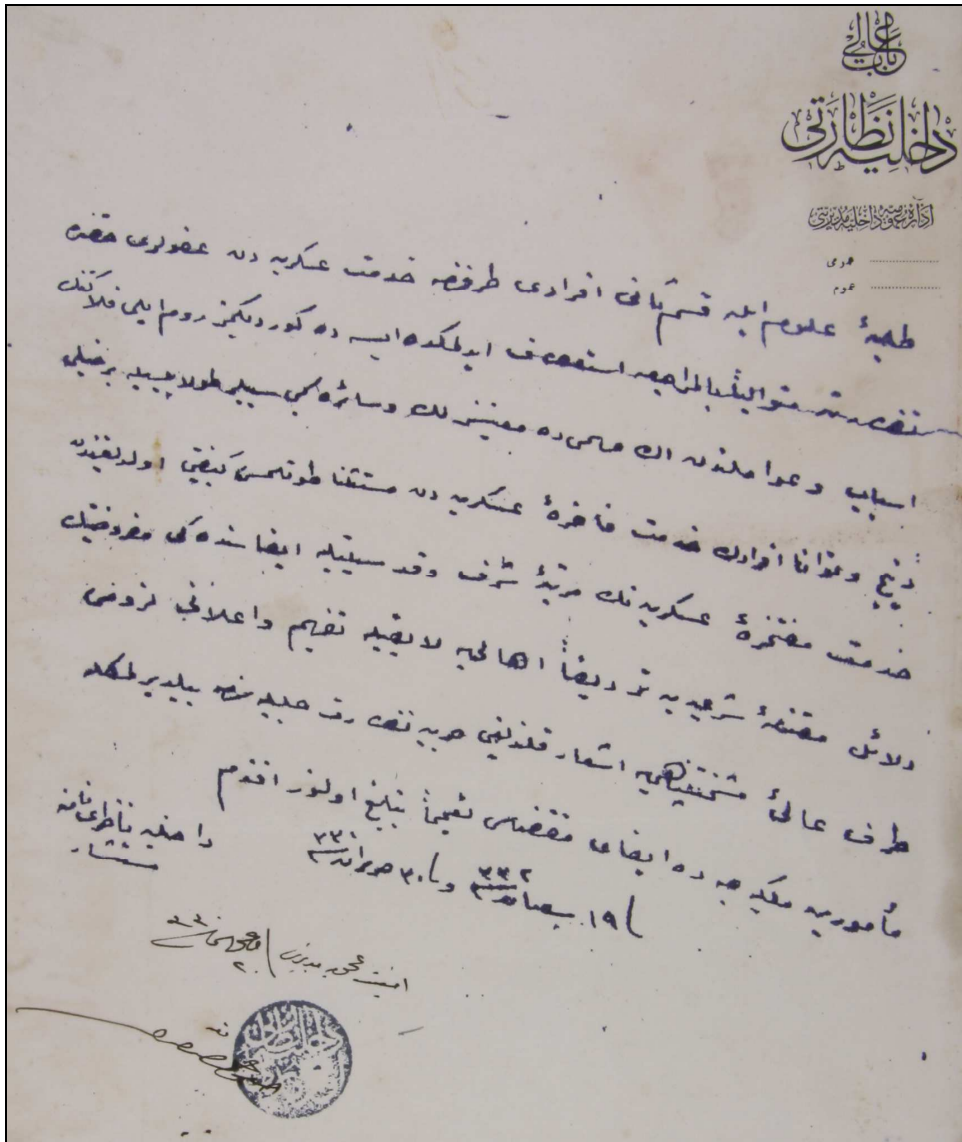 باب عالی
داخلیه نظارتی
اداره عمومیه داخلیه مدیریتی
عمومی
طلبهٔ علوم ایله قسم ثانی افرادی طرفندن خدمت عسکریه دن عفولری حقنده
متوالیاً بالمراجعه استعطاف ایدلمکده ایسه ده کوردیکمز روم ایلی فلاکتنك
اسباب وعواملندن اك مهمی ده معینسزلك وسائره کبی سببلر طولاییسیله برخیلی
وتوانا افرادك خدمت فاخرهٔ عسکریه دن مستثنا طوتلمسی کیفیتی اولدیغندن
خدمت مفتخرهٔ عسکریه نك مرتبهٔ شرف وقدسیتیله ایفاسنده کی مفروضیتك
دلائل مقنعهٔ شرعیه یه تردیفاً اهالی یه لایقیله تفهیم واعلانی لزومی
طرف عالیٔ مشیختپناهی یه اشعار قلندیغی حربیه نظارت جلیله سندن بیلدیرلمکله
مأمورین ملکیه جه ده ایفای مقتضاسی تعمیماً تبلیغ اولنور افندم
فی ١٩ شعبان ٣٣٢ وفی ٣٠ حزیران ٣٣٠
داخلیه ناظری نامنه
مستشار
امنیت عمومیه مدیریتی